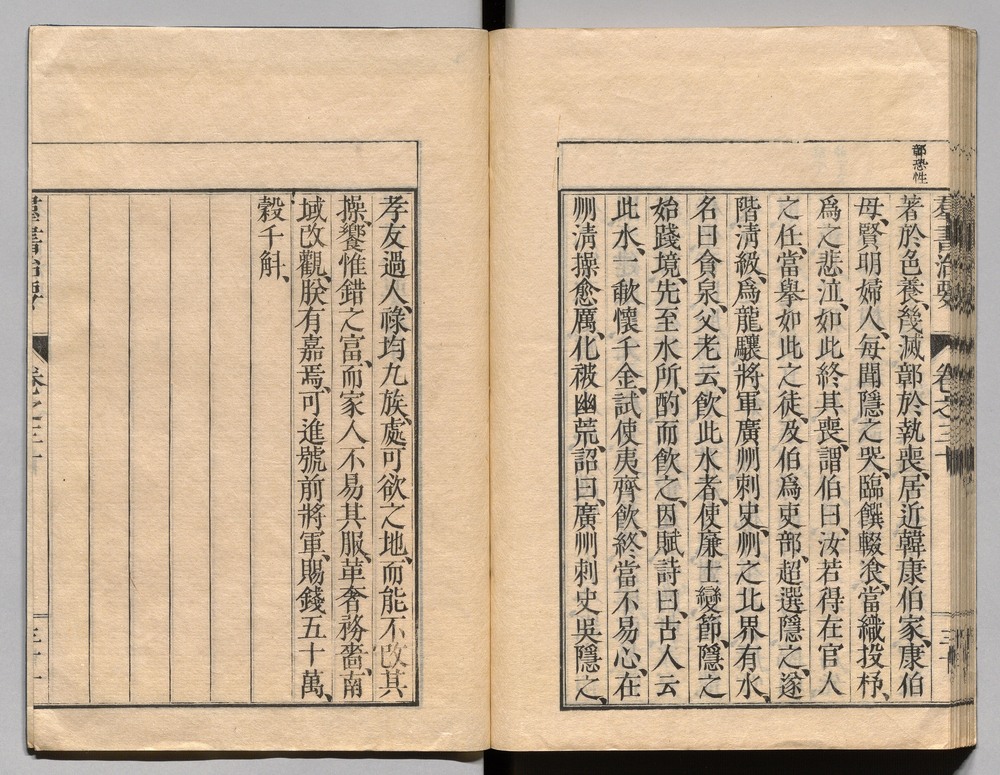 鄣恐性
羣書治要 卷之三十 三十
著於色養、幾滅鄣於執喪、居近韓康伯家、康伯
母、賢明婦人、每聞隱之哭、臨饌輟飡、當織投杼、
爲之悲泣、如此終其喪、謂伯曰、汝若得在官人
之任、當舉如此之徒、及伯爲吏部、超選隱之、遂
階淸級、爲龍驤將軍廣州刺史、州之北界有水、
名曰貪泉、父老云、飲此水者、使廉士變節、隱之
始踐境、先至水所、酌而飲之、因賦詩曰、古人云
此水、一歃懷千金、試使夷齊飲、終當不易心、在
州淸操愈厲、化被幽荒、詔曰、廣州刺史吳隱之、
孝友過人、祿均九族、處可欲之地、而能不改其
操、饗惟錯之富、而家人不易其服、革奢務嗇、南
域改觀、朕有嘉焉、可進號前將軍、賜錢五十萬、
穀千斛、
羣書治要 卷之三十